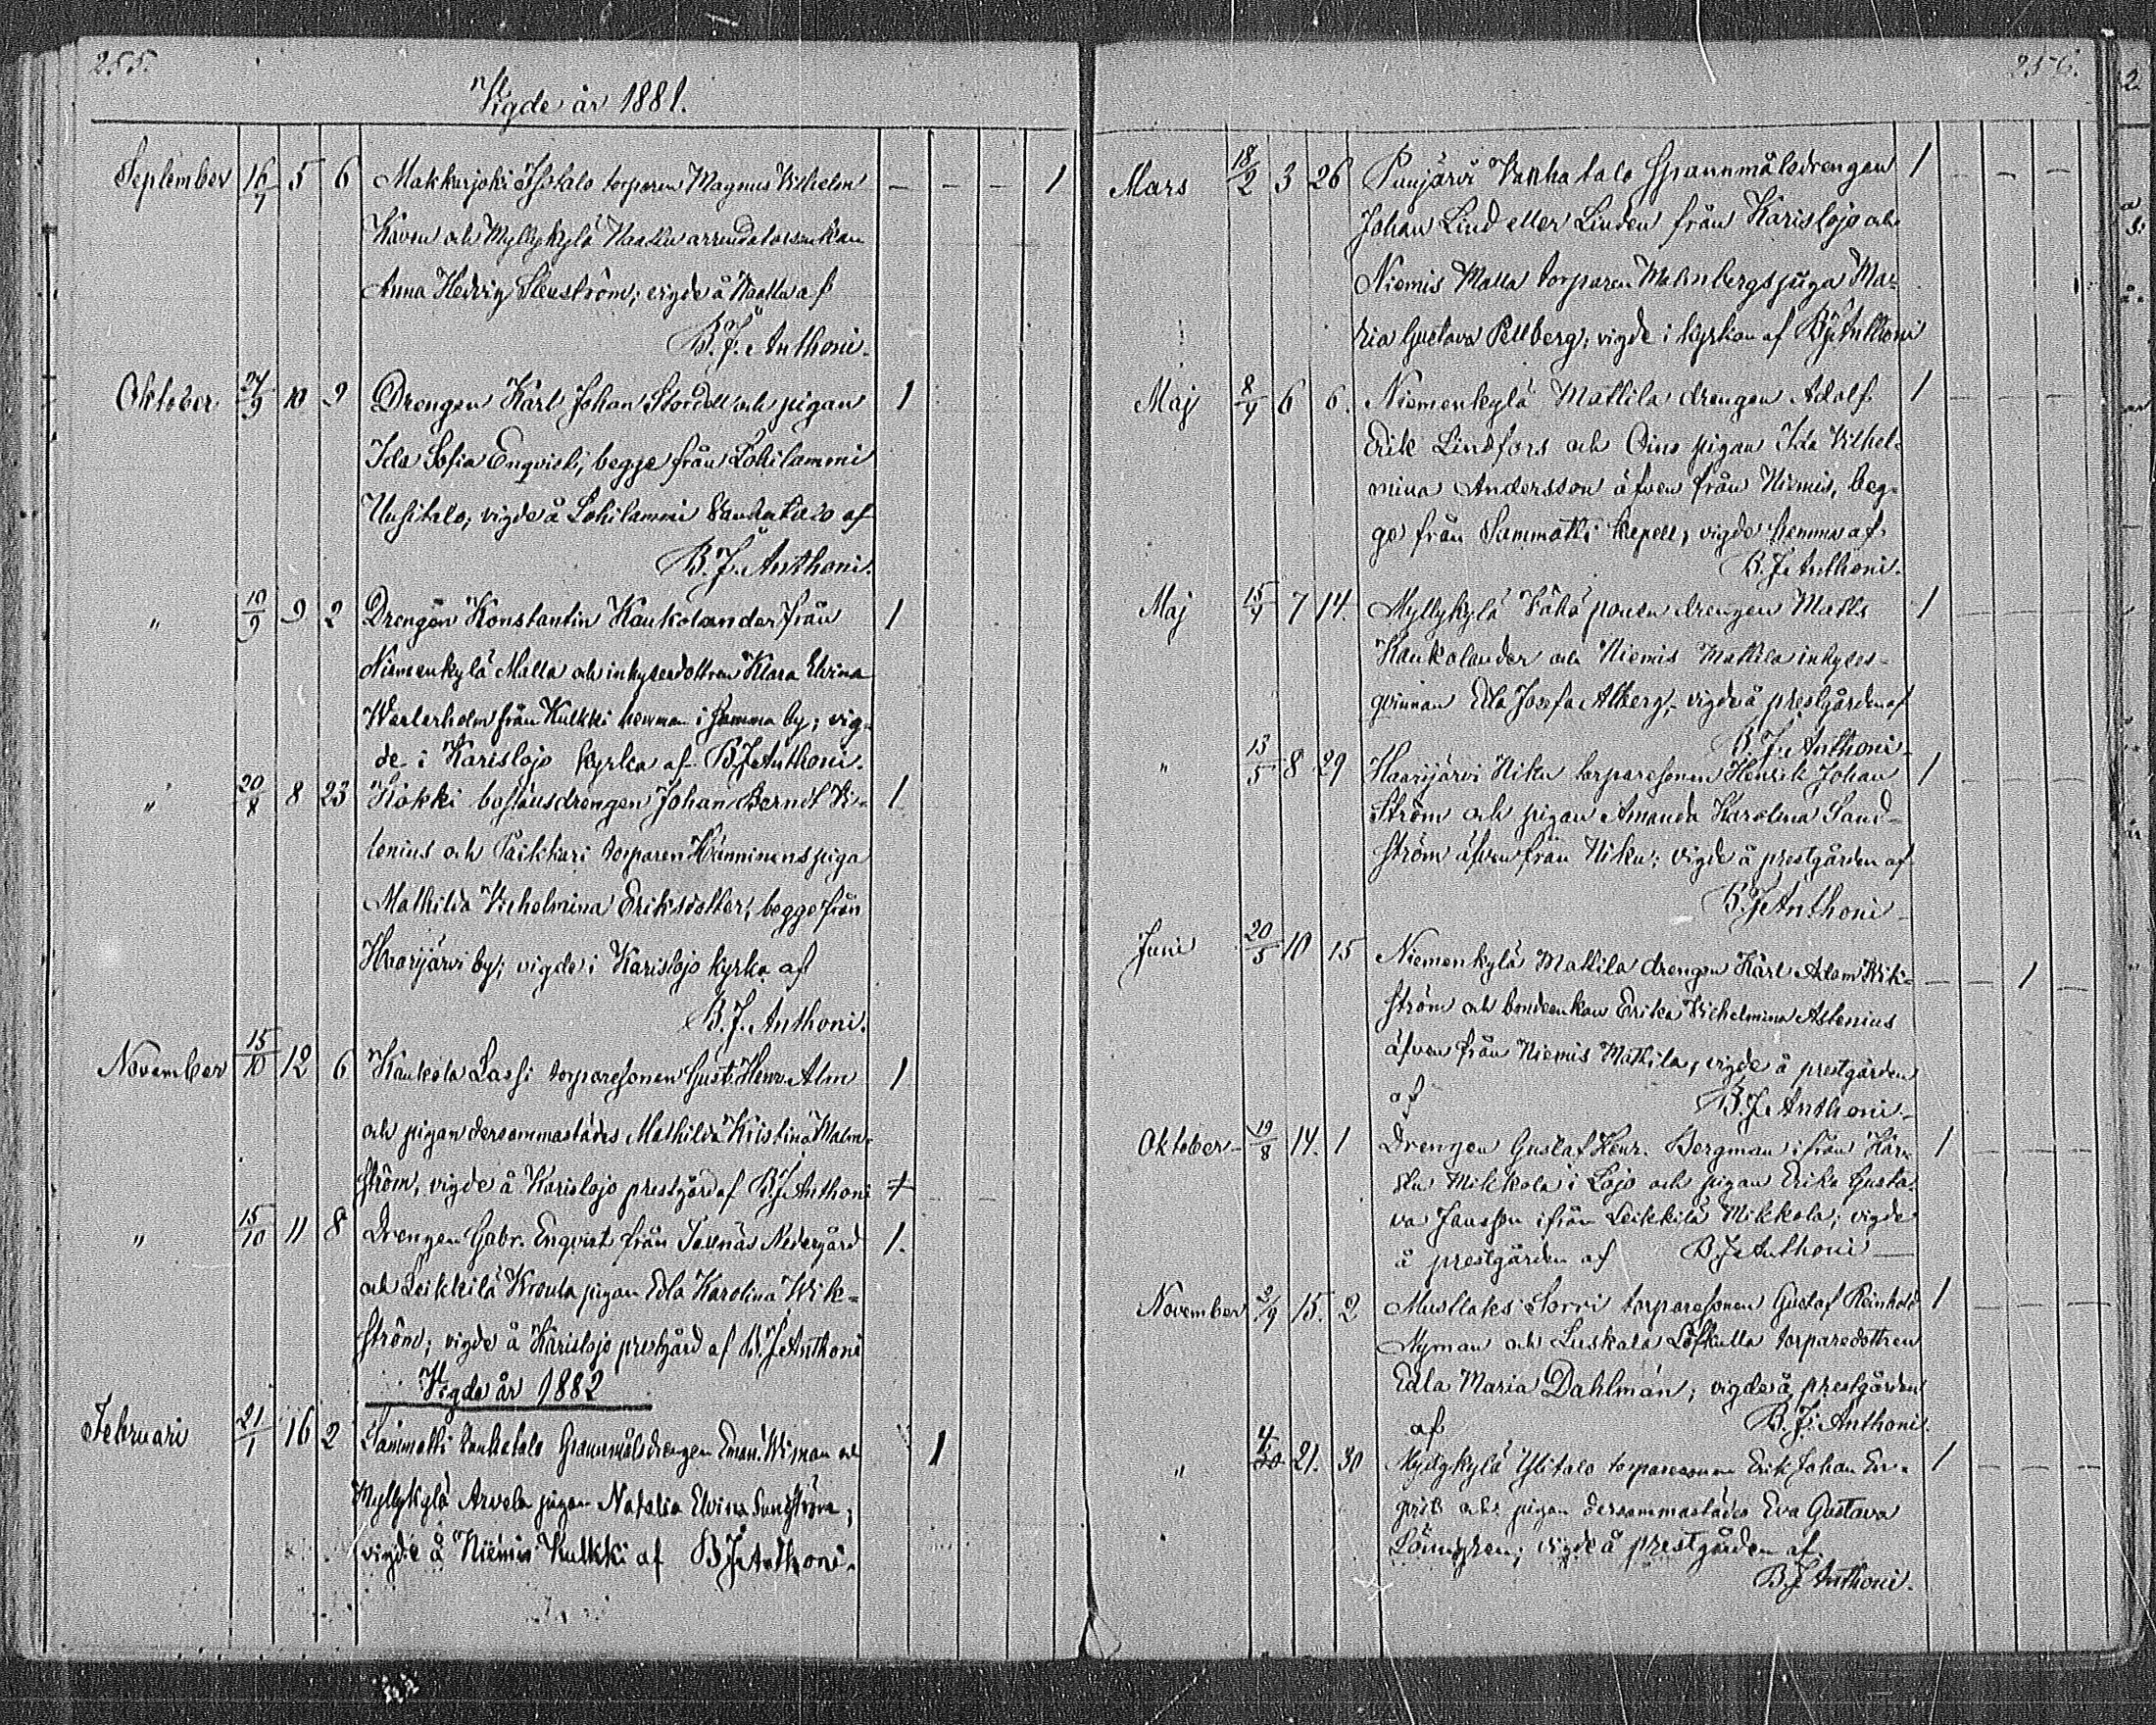 255.
Vigde år 1881.
September 16/7 5 6 Makkarjoki Isotalo torparen Magnus Vilhelm - - - 1
och Myllykylä Naatu arrendatorsenkan
Anna Hedvig Stenström; vigde å Naatu af
B. J. Anthoni.
Oktober 24/9 10 9 Drengen Karl Johan Stordell och pigan 1
Ida Sofia Enqvist, begge från Lohilammi
Uusitalo, vigde å Lohilammi af
B. J. Anthoni.
" 10/9 9 2 Drengen Konstantin Kaukolander från 1
Niemenkylä Malla och inhysesdottren Klara Elvina
Westerholm från Kulkki hemman i samma by; vig-
de i Karislojo kyrka af B J Anthoni.
" 20/8 8 23 Kokki Johan Berndt Vi- 1
lenius och Paikkari torparen Hänninens piga
Mathilda Vilhelmina Eriksdotter, begge från
Haarijärvi by; vigde i Karislojo kyrka af
B. J. Anthoni.
November 15/10 12 6 Kaukola Lassi torparesonen Gust. Henr. Alm 1
och pigan dersammastädes Mathilda Kristina Malm-
ström, vigde å Karislojo prestgård af B. J. Anthoni
" 15/10 11 8 Drengen Gabr. Enqvist från Nedergård 1.
och Leikkilä Kroula pigan Edla Karolina Wik-
ström; vigde å Karislojo prestgård af B. J. Anthoni
Vigde år 1882
Februari 21/1 16 2 Sammatti Vanhatalo Grannmålsdrengen Eman. Wiman och 1
Myllykylä Arvela pigan Natalia Elvira Sundström;
vigde å Niemis Kulkki af B J Anthoni.
256.
Mars 18/2 3 26 Puujärvi Vanhatalo Grannmålsdrengen 1 - - -
Johan Lind eller Linden från Karislojo och
Niemis Malla torparen Malmbergs piga Ma-
ria Gustava Pellberg; vigde i kyrkan af B J Anthoni
Maj 8/4 6 6. Niemenkylä Mattila drengen Adolf 1 - - -
Erik Lindfors och Oino pigan Ida Vilhel-
mina Andersson äfven från Niemis, beg-
ge från Sammatti kapell, vigde hemma af
B. J. Anthoni.
Maj 15/4 7 14. Myllykylä Vähä drengen Matts 1 - - -
Kaukolander och Niemis Mattila inhyses-
qvinnan Edla Josefa Alberg, vigde å prestgården af
B. J. Anthoni
" 13/5 8 29 Haarijärvi Niku torparesonen Henrik Johan 1 - - -
Ström och pigan Amanda Karolina Sand-
ström äfven från Niku; vigde å prestgården af
B J Anthoni
Juni 20/5 10 15 Niemenkylä Mattila drengen Karl Adam Wik- - - 1 -
ström och bondeenkan Erika Vilhelmina Astenius
äfven från Niemis Mattila, vigde å prestgården
af B. J. Anthoni
Oktober 19/8 14. 1 Drengen Gustaf Henr. Bergman ifrån Kär- 1 - - -
Mikkola i Lojo och pigan Erika Gusta-
va Jansson ifrån Leikkilä Mikkola; vigde
å prestgården af B. J. Anthoni
November 2/9 15. 2 Mustlaks Sorvi torparesonen Gustaf Reinhold 1 - - -
Nyman och Luskala Löfkulla torparedottren
Edla Maria Dahlman; vigde å prestgården
af B. J. Anthoni.
" 21. 30 Myllykylä Ylitalo torparesonen Erik Johan En- 1 - - -
qvist och pigan dersammastädes Eva Gustava
Lönngren; vigde å prestgården af
B. J. Anthoni.